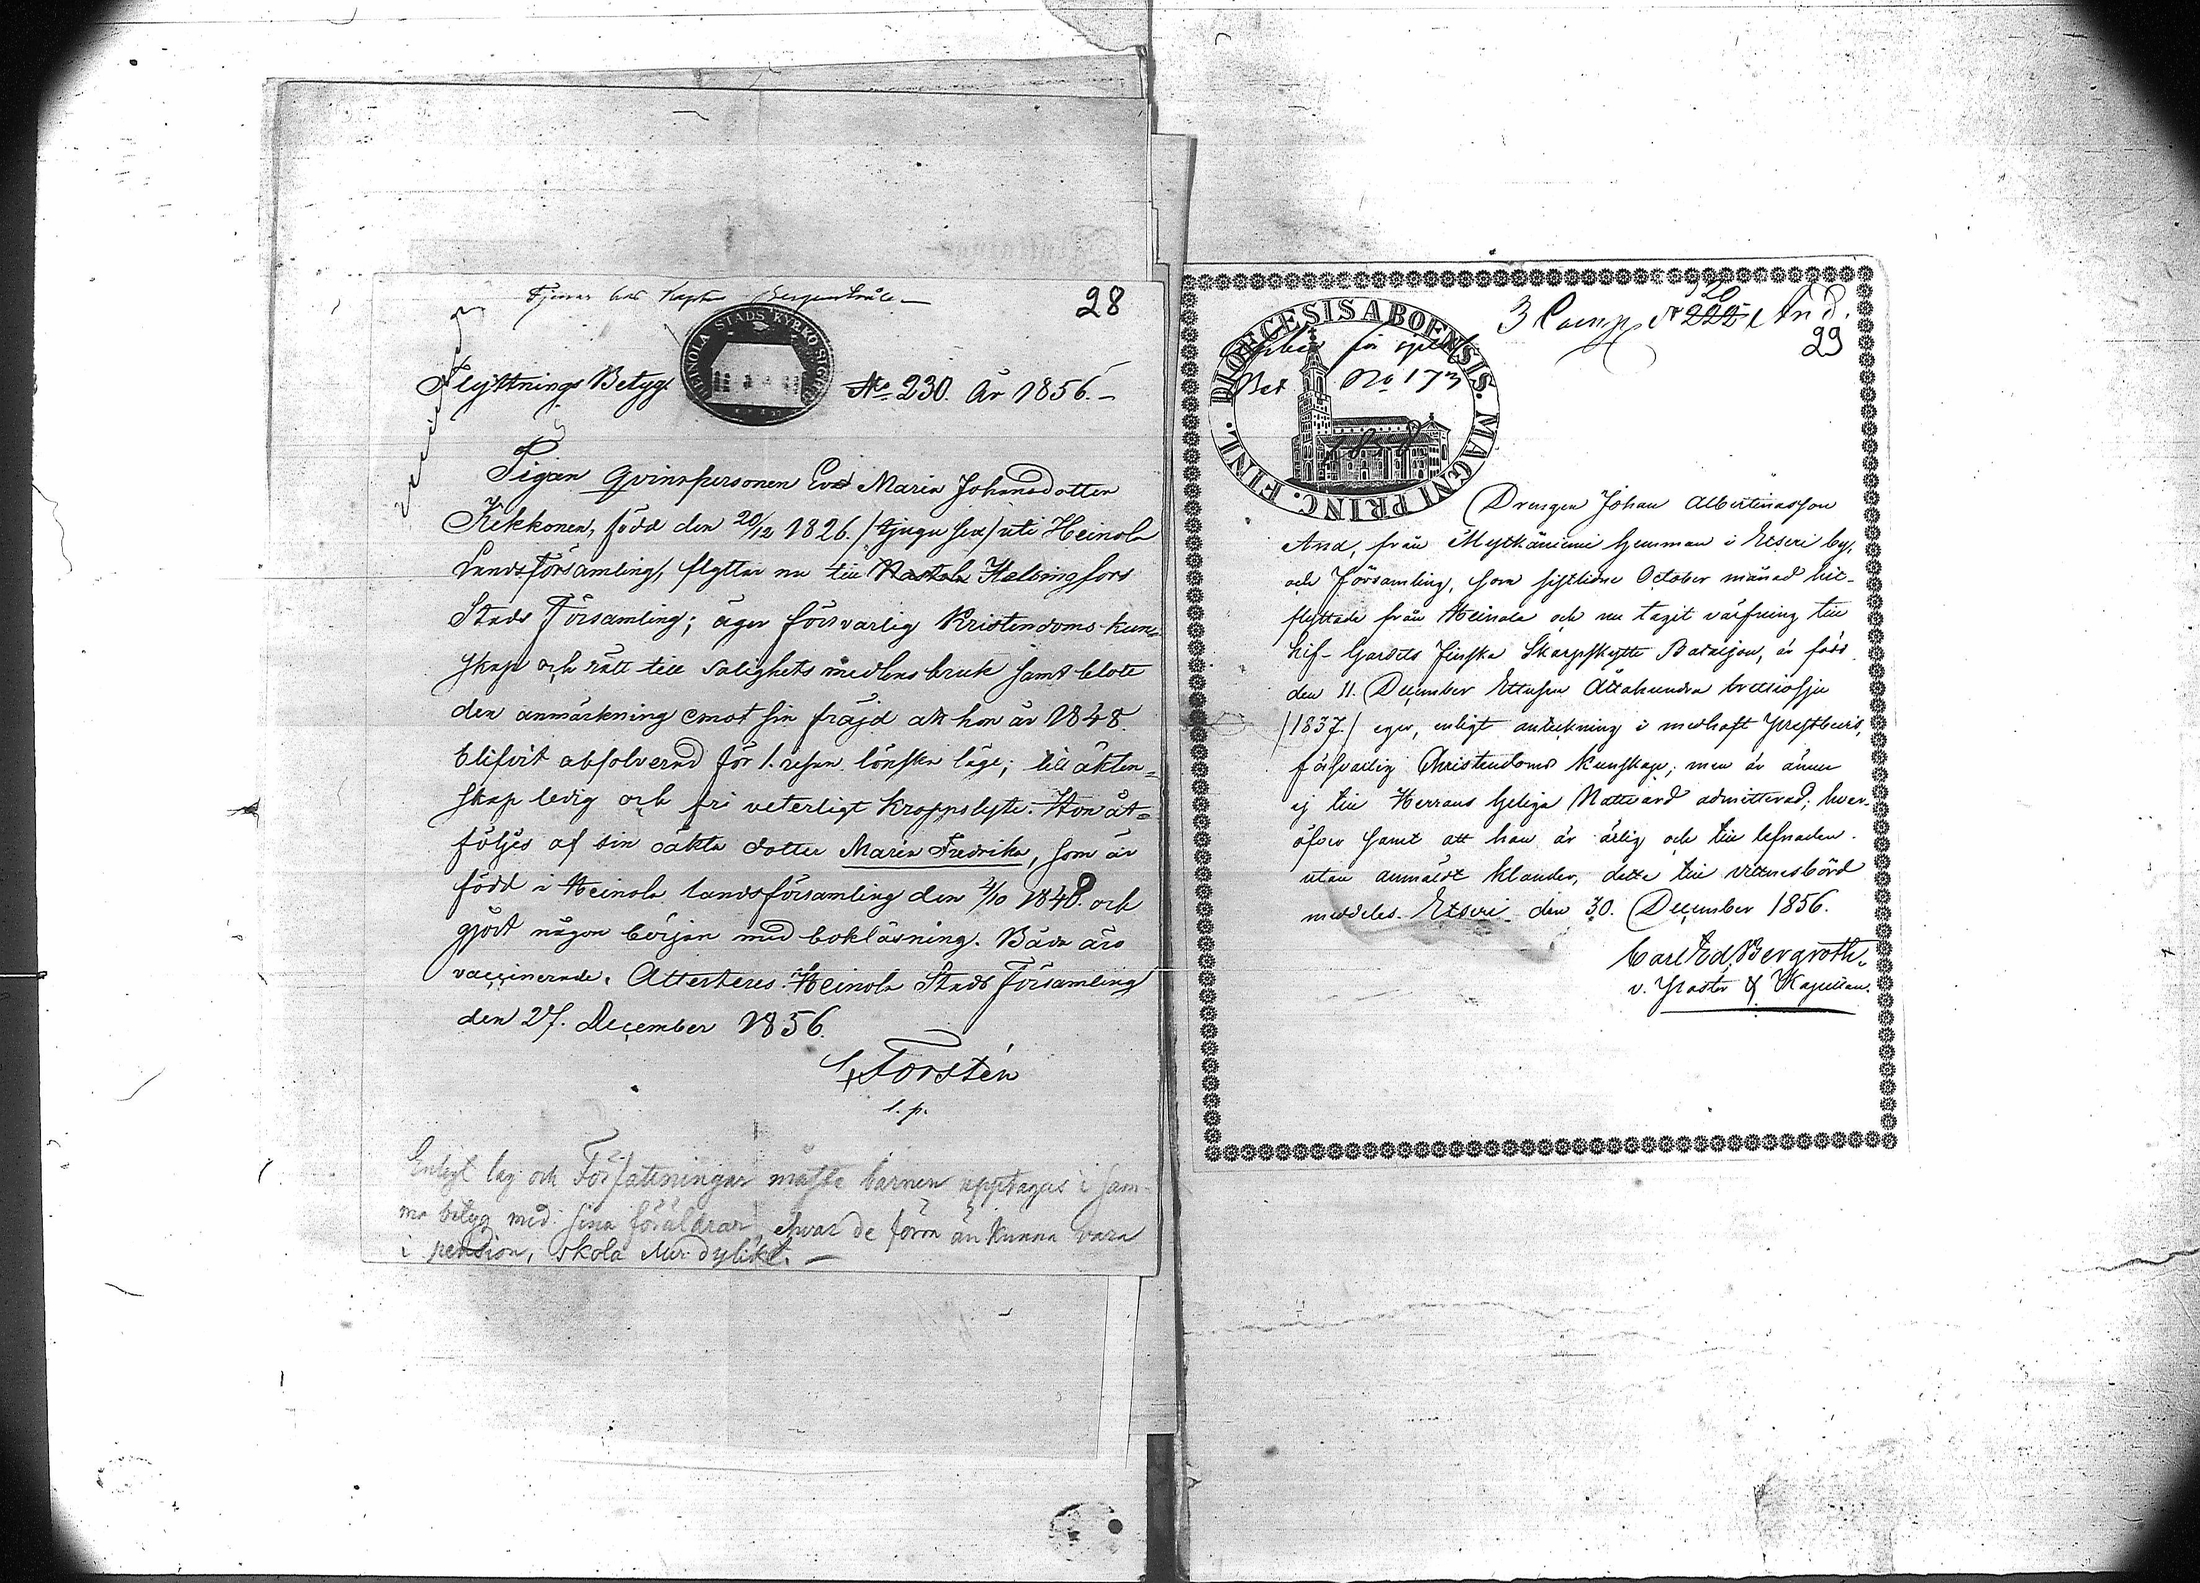 Tjenar hos Kapten Bergenstråle
28
HEINOLA STADS KYRKO SIGILL
Flyttnings Betyg. No 230. År 1856.-
Pigan Qvinspersonen Eva Maria Johansdotter
Kekkonen, född den 20/12 1826. /tjugu sex/ uti Heinola
Landsförsamling, flyttar nu till Nastola Helsingfors
Stads Församling; äger försvarlig Kristendoms kun-
skap och rätt till salighets medlens bruk samt blott
den anmärkning emot sin fräjd att hon år 1848
blifvit absolverad för 1. resan lönska läge; till äkten=
skap ledig och fri veterligt kroppslyte. Hon åt=
följes af sin oäkta dotter Maria Fredrika, som är
född i Heinola landsförsamling den 4/10 1848. och
gjort någon början med bokläsning. Båda äro
vaccinerade. Attesteres. Heinola Stads Församling
den 27. December 1856.
Forstén
l. p.
Enligt lag och Författningar måste barnen upptagas i sam-
ma betyg med sina föräldrar, ehvar de förr än kunna vara
i pension, skola eller dylikt. -
DIOECESIS ABOENSIS. MAGNI PRINC. FINL.
3 Comp. N 222 And.
20
29
för
Bet No 173
Drengen Johan Albertinsson
And, från Myllkäniemi hemman i Etseri by,
och Församling, som sistlidne October månad hit-
flyttade från Heinola och nu tagit värfning till
Lif-Gardets Finska Skarpskytte Bataljon, är född
den 11. December Ettusen Åttahundra trettiosju
/1837/ eger, enligt anteckning i medhaft Prestbevis,
försvarlig Christendoms kunskap; men är ännu
ej till Herrans heliga Nattvard admitterad; hvar-
öfver samt att han är ärlig och till lefnaden
utan anmäldt klander, detta till vittnesbörd
meddeles. Etseri den 30. December 1856.
Carl Ed. Bergroth.
v. Pastor & Kapellan.